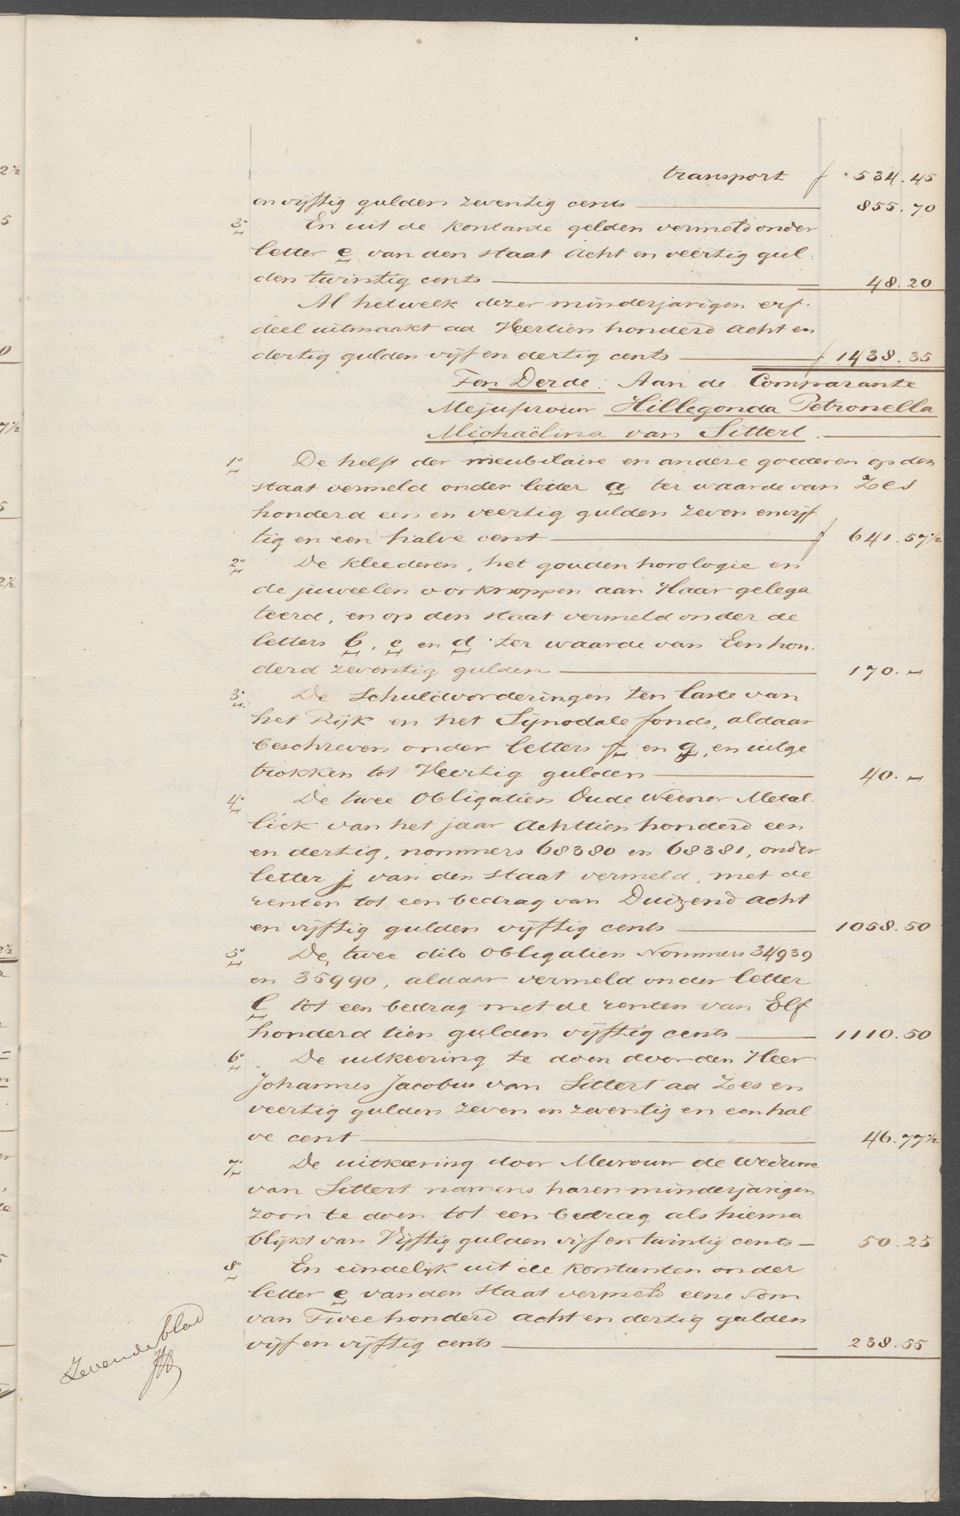 transport f 534.45
en vijftig gulden zeventig cents 855.70
3o En uit de kontante gelden vermeld onder
letter e van den staat Acht en veertig gul-
den twintig cents 48.20
Al hetwelk dezer minderjarigen erf-
deel uitmaakt ad Veertien honderd acht en
dertig gulden vijf en dertig cents f 1438.35
Ten Derde: Aan de Comparante
Mejufvrouw Hillegonda Petronella
Michaëlina van Sittert.
1o De helft der meubilaire en andere goederen op den
staat vermeld onder letter a ter waarde van Zes
honderd een en veertig gulden zeven en vijf
tig en een halve cent f 641.57½
2o De kleederen, het gouden horologie en
de juweelen oorknoppen aan Haar gelega
teerd, en op den staat vermeld onder de
letters b, c en d ter waarde van Een hon-
derd zeventig gulden 170.–
3o De Schuldvorderingen ten laste van
het Rijk en het Sijnodale fonds, aldaar
beschreven onder letters f en g, en uitge
trokken tot Veertig gulden 40.–
4o De twee Obligatien Oude Weener Metal-
liek van het jaar Achttien honderd een
en dertig, nommers 68380 en 68381, onder
letter j van den staat vermeld, met de
renten tot een bedrag van Duizend acht
en vijftig gulden vijftig cents 1058.50
5o De twee dito Obligatien Nommers 34939
en 35990, aldaar vermeld onder letter
l tot een bedrag met de renten van Elf
honderd tien gulden vijftig cents 1110.50
6o De uitkeering te doen door den Heer
Johannes Jacobus van Sittert ad Zes en
veertig gulden zeven en zeventig en een hal
ve cent 46.77½
7o De uitkeering door Mevrouw de Weduwe
van Sittert namens haren minderjarigen
zoon te doen tot een bedrag als hierna
blijkt van Vijftig gulden vijf en twintig cents 50.25
8o En eindelijk uit de kontanten onder
letter e van den staat vermeld eene som
van Twee honderd acht en dertig gulden
vijf en vijftig cents 238.55
Zevende blad